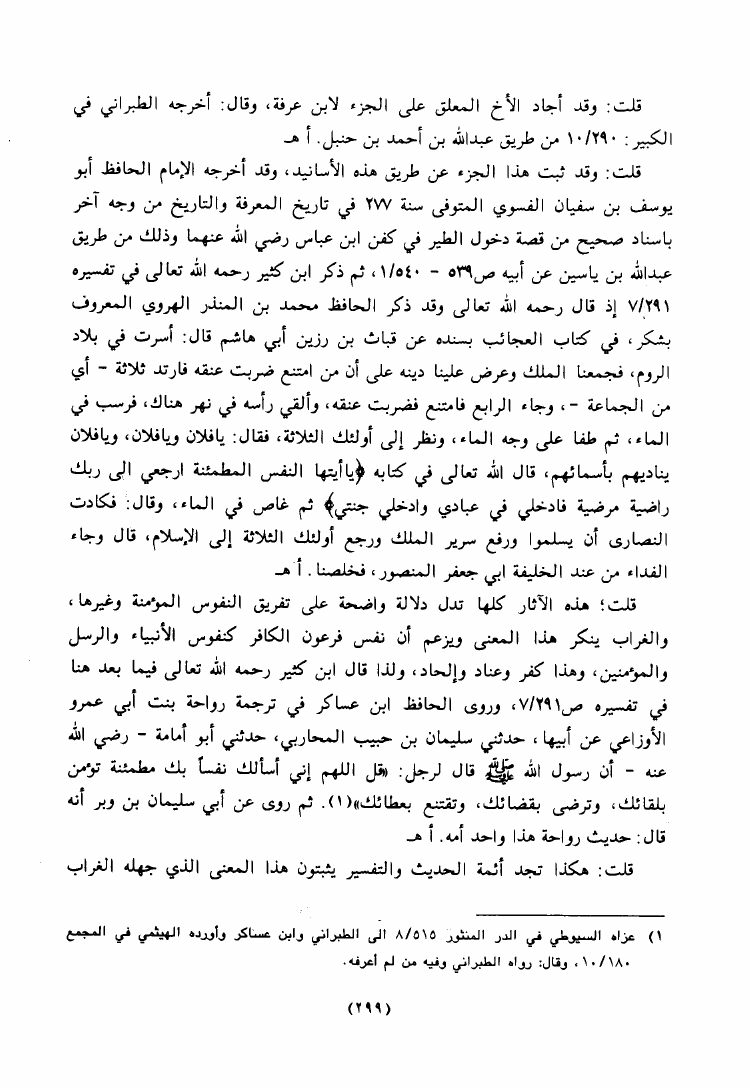 قلت: وقد أجاد الأخ المعلق على الجزء لابن عرفة، وقال: أخرجه الطبراني في
الكبير: ١٠/٢٩٠ من طريق عبدالله بن أحمد بن حنبل. أ هـ
قلت: وقد ثبت هذا الجزء عن طريق هذه الأسانيد، وقد أخرجه الإمام الحافظ أبو
يوسف بن سفيان الفسوي المتوفى سنة ٢٧٧ في تاريخ المعرفة والتاريخ من وجه آخر
باسناد صحيح من قصة دخول الطير في كفن ابن عباس رضي الله عنهما وذلك من طريق
عبدالله بن ياسين عن أبيه ص٥٣٩ - ١/٥٤٠، ثم ذكر ابن كثير رحمه الله تعالى في تفسيره
٧/٢٩١ إذ قال رحمه الله تعالى وقد ذكر الحافظ محمد بن المنذر الهروي المعروف
بشكر، في كتاب العجائب بسنده عن قباث بن رزين أبي هاشم قال: أسرت في بلاد
الروم، فجمعنا الملك وعرض علينا دينه على أن من امتنع ضربت عنقه فارتد ثلاثة - أي
من الجماعة -، وجاء الرابع فامتنع فضربت عنقه، وألقي رأسه في نهر هناك، فرسب في
الماء، ثم طفا على وجه الماء، ونظر إلى أولئك الثلاثة، فقال: يافلان ويافلان، ويافلان
يناديهم بأسمائهم، قال الله تعالى في كتابه ﴿ياأيتها النفس المطمئنة ارجعي الى ربك
راضية مرضية فادخلي في عبادي وادخلي جنتي﴾ ثم غاص في الماء، وقال: فكادت
النصارى أن يسلموا ورفع سرير الملك ورجع أولئك الثلاثة إلى الإسلام، قال وجاء
الفداء من عند الخليفة ابي جعفر المنصور، فخلصنا. أ هـ
قلت؛ هذه الآثار كلها تدل دلالة واضحة على تفريق النفوس المؤمنة وغيرها،
والغراب ينكر هذا المعنى ويزعم أن نفس فرعون الكافر كنفوس الأنبياء والرسل
والمؤمنين، وهذا كفر وعناد وإلحاد، ولذا قال ابن كثير رحمه الله تعالى فيما بعد هنا
في تفسيره ص٧/٢٩١، وروى الحافظ ابن عساكر في ترجمة رواحة بنت أبي عمرو
الأوزاعي عن أبيها، حدثني سليمان بن حبيب المحاربي، حدثني أبو أمامة - رضي الله
عنه - أن رسول الله ﷺ قال لرجل: «قل اللهم إني أسألك نفساً بك مطمئنة تؤمن
بلقائك، وترضى بقضائك، وتقتنع بعطائك»(١). ثم روى عن أبي سليمان بن وبر أنه
قال: حديث رواحة هذا واحد أمه. أ هـ
قلت: هكذا تجد أئمة الحديث والتفسير يثبتون هذا المعنى الذي جهله الغراب
١) عزاه السيوطي في الدر المنثور ٨/٥١٥ الى الطبراني وابن عساكر وأورده الهيثمي في المجمع
١٠/١٨٠، وقال: رواه الطبراني وفيه من لم أعرفه.
(٢٩٩)